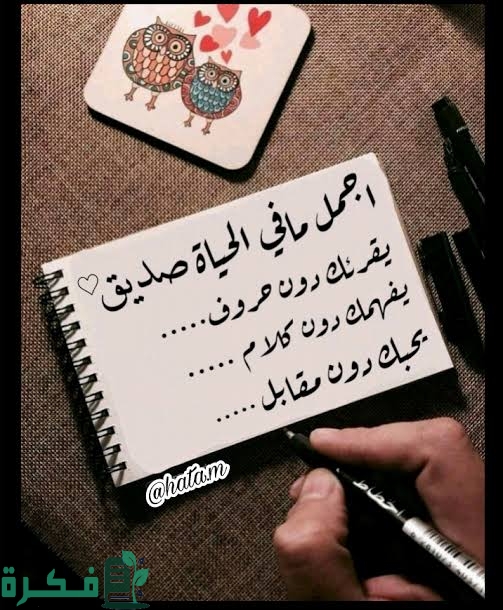 اجمل مافي الحياة صديق♡
يقرئك دون حروف.....
يفهمك دون كلام .....
يحبك دون مقابل .....
@hata.m
الخطاط
فكرة